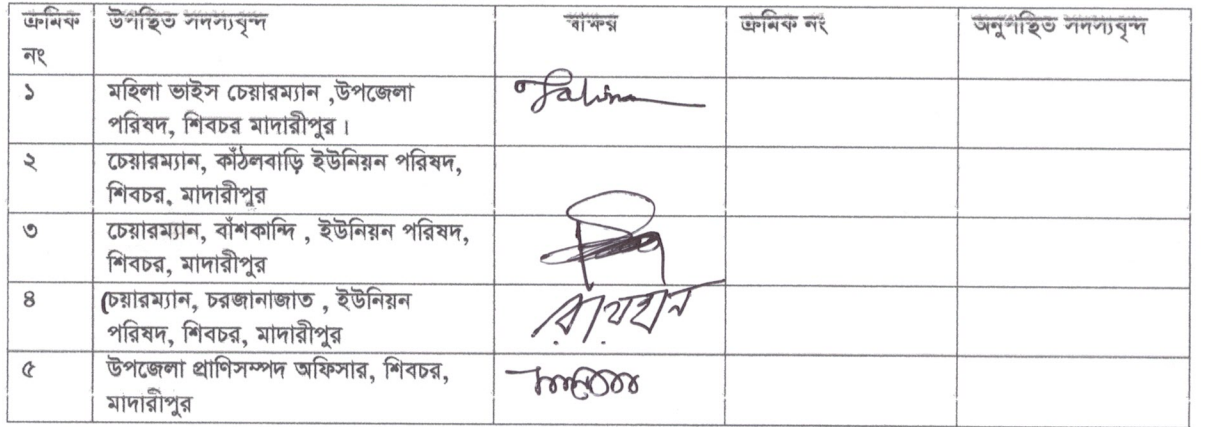 ক্রমিক নং উপস্থিত সদস্যবৃন্দ স্বাক্ষর ক্রমিক নং অনুপস্থিত সদস্যবৃন্দ
১ মহিলা ভাইস চেয়ারম্যান ,উপজেলা
পরিষদ, শিবচর মাদারীপুর ।
২ চেয়ারম্যান, কাঁঠলবাড়ি ইউনিয়ন পরিষদ,
শিবচর, মাদারীপুর
৩ চেয়ারম্যান, বাঁশকান্দি , ইউনিয়ন পরিষদ,
শিবচর, মাদারীপুর
৪ চেয়ারম্যান, চরজানাজাত , ইউনিয়ন
পরিষদ, শিবচর, মাদারীপুর
রায়হান
৫ উপজেলা প্রাণিসম্পদ অফিসার, শিবচর,
মাদারীপুর